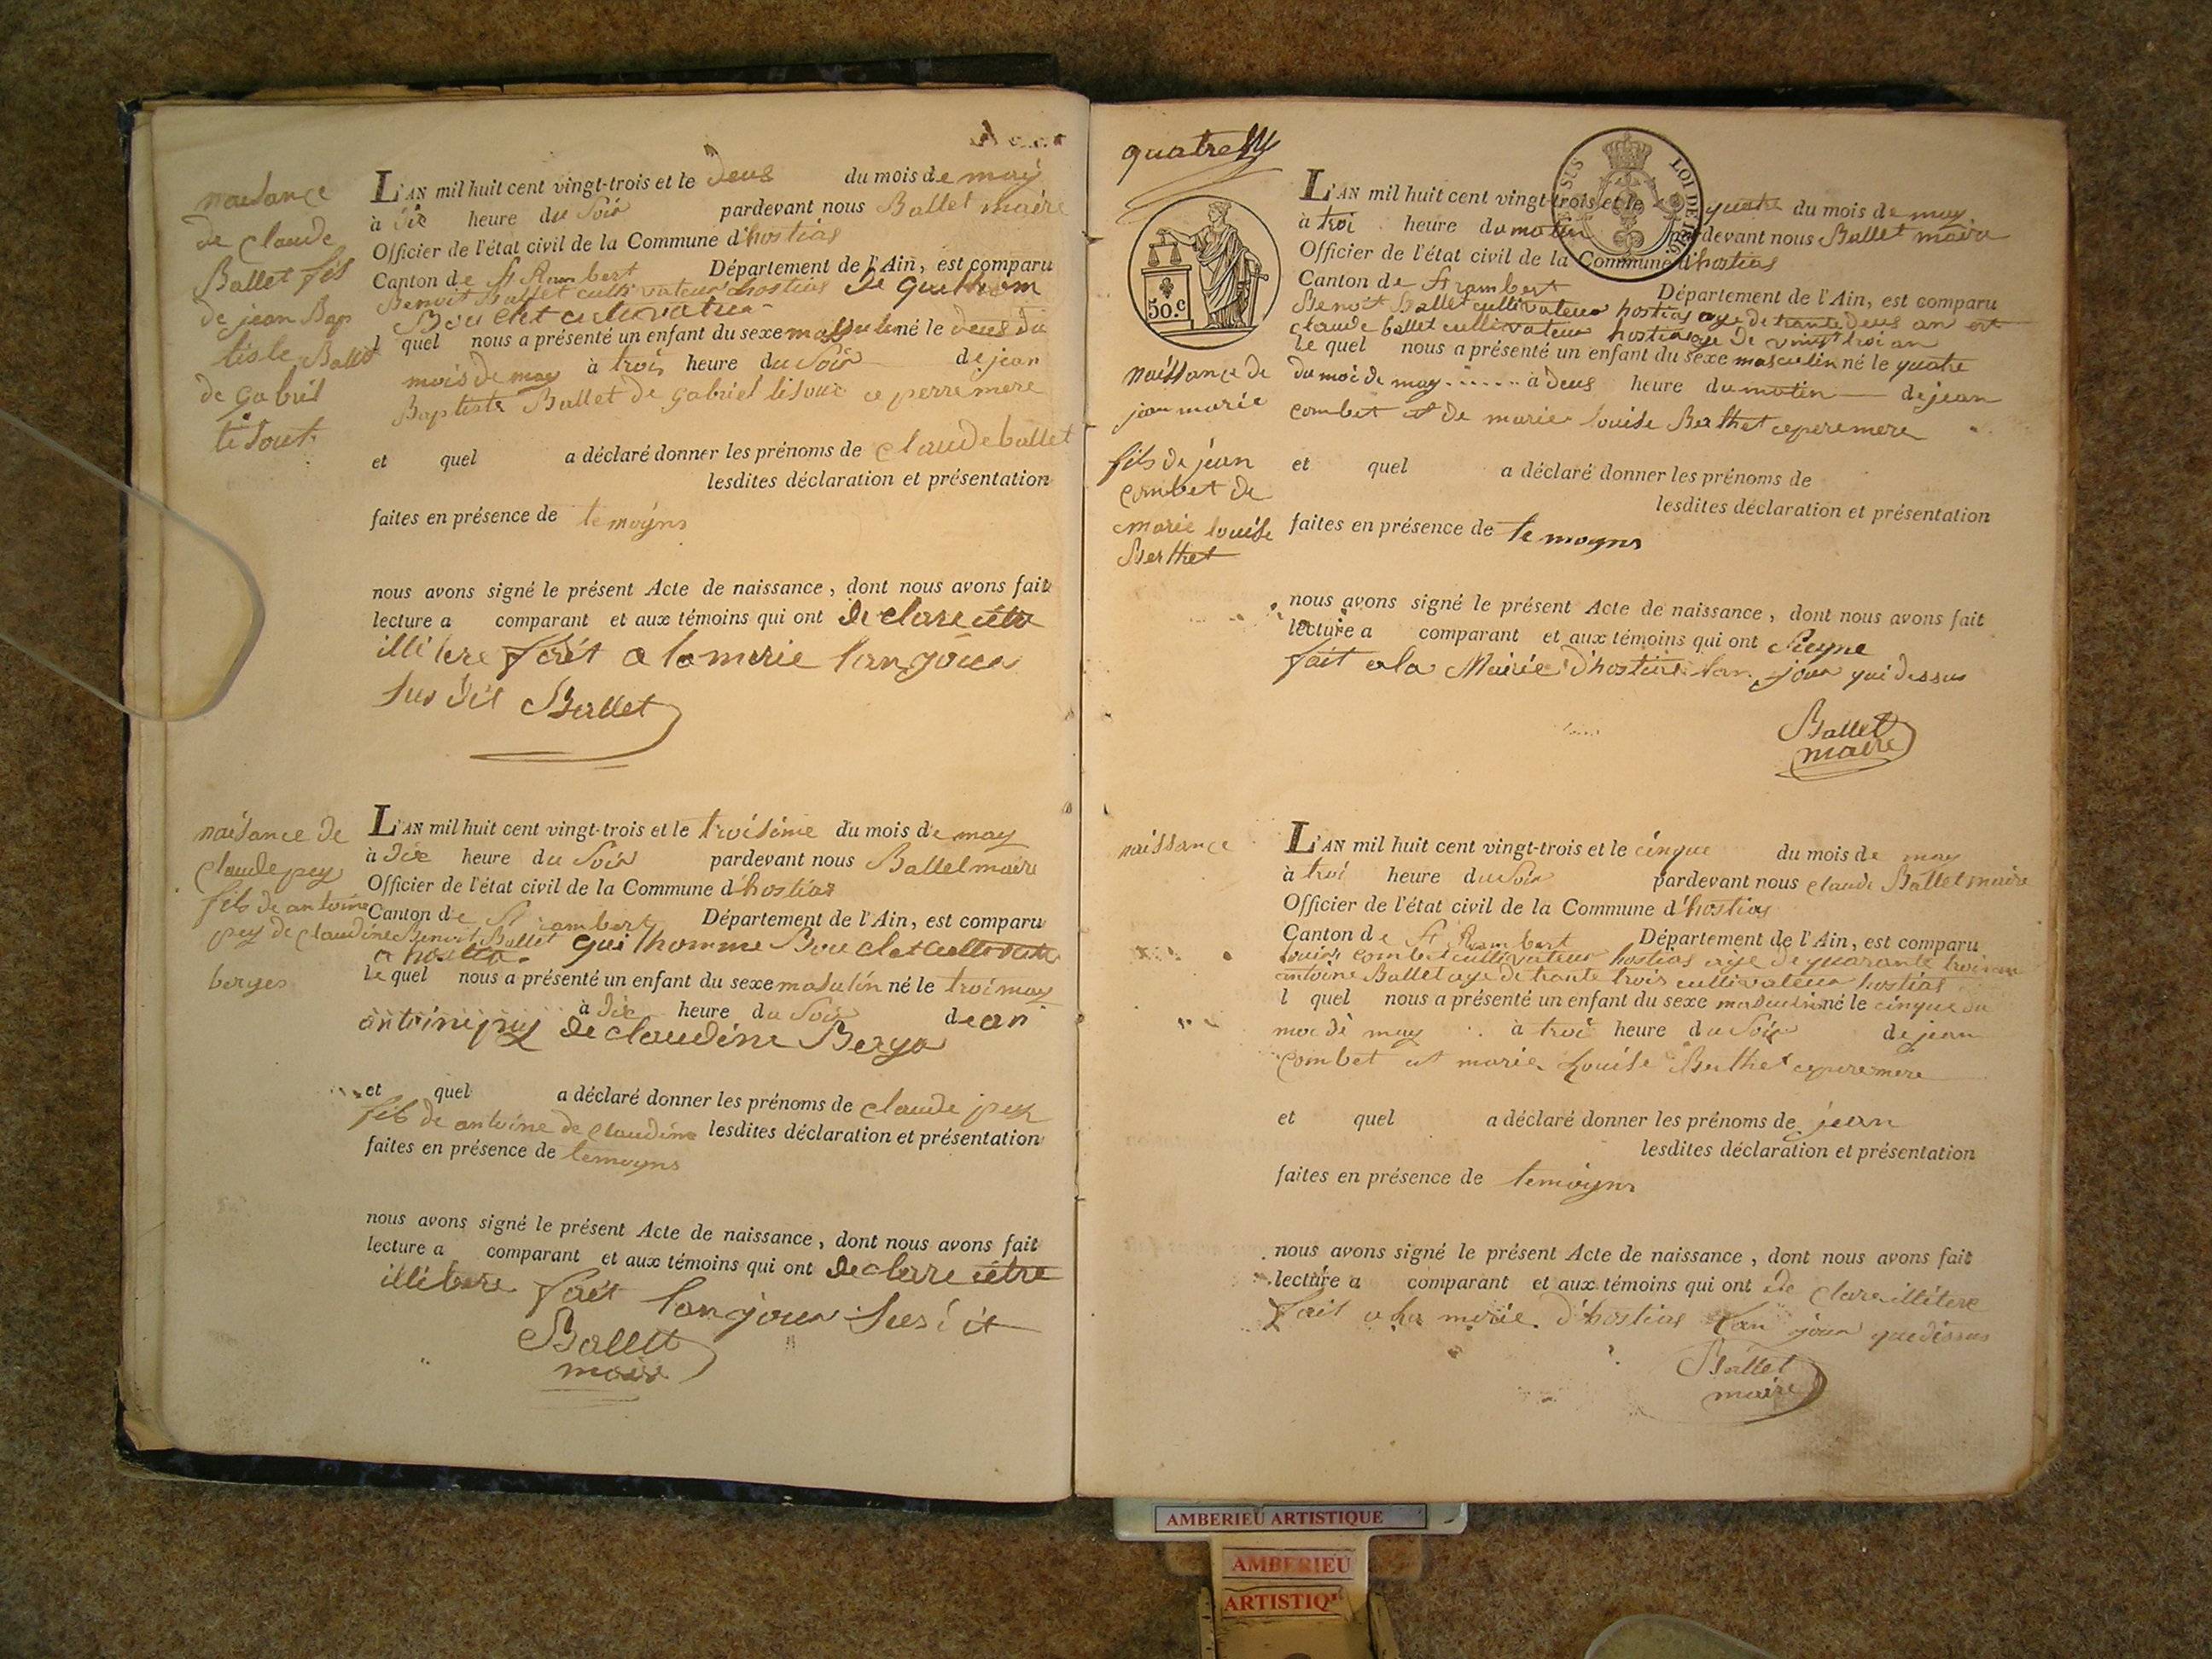 naisance
de claude
Ballet fils
de jean Bap
tiste Ballet
de Gabriel
tisout
L'AN mil huit cent vingt-trois et le deus du mois de may
à dix heure du Soir pardevant nous Ballet maire
Officier de l'état civil de la Commune d'hostias
Canton de St Rambert Département de l'Ain, est comparu
Benoit Ballet cultivateur hostias
Bouchet
l quel nous a présenté un enfant du sexe né le deus du
mois de may à trois heure du Soir de jean
Baptiste Ballet de Gabriel ce perre mere
et quel a déclaré donner les prénoms de claude ballet
lesdites déclaration et présentation
faites en présence de temoyns
nous avons signé le présent Acte de naissance, dont nous avons fait
lecture a comparant et aux témoins qui ont declare
illitere fait a la merie lan jour
sus dit Ballet
naisance de
claude pey
fils de antoine
pey de claudine
berges
L'AN mil huit cent vingt-trois et le troisime du mois de may
à dix heure du Soir pardevant nous Ballet maire
Officier de l'état civil de la Commune d'hostias
Canton de St rambert Département de l'Ain, est comparu
Benoit Ballet guilhomme Bouchet
a hostias
le quel nous a présenté un enfant du sexe masulin né le troi may
à dix heure du Soir de an
antoine pey de claudine
et quel a déclaré donner les prénoms de claude pey
fils de antoine de claudine lesdites déclaration et présentation
faites en présence de temoyns
nous avons signé le présent Acte de naissance, dont nous avons fait
lecture a comparant et aux témoins qui ont declare
fait lan jour sus dit
Ballet
maire
quatre
50.c
LOI DE 1816.
naissance de
jean marie
fils de jean
combet de
marie louise
Berthet
L'AN mil huit cent vingt-trois et le quatre du mois de may
à troi heure du matin pardevant nous Ballet maire
Officier de l'état civil de la Commune d'hostias
Canton de St rambert Département de l'Ain, est comparu
Benoit Ballet cultivateur hostias aye de trante deus an et
claude ballet cultivateur hostias aye de vingt troi an
le quel nous a présenté un enfant du sexe masculin né le quatre
du moi de may à deus heure du matin de jean
combet et de marie louise Berthet ce pere mere
et quel a déclaré donner les prénoms de
lesdites déclaration et présentation
faites en présence de temoyns
nous avons signé le présent Acte de naissance, dont nous avons fait
lecture a comparant et aux témoins qui ont
fait a la Mairie d'hostias lan jour que dessus
Ballet
maire
naissance
L'AN mil huit cent vingt-trois et le cinque du mois de may
à troi heure du Soir pardevant nous claude Ballet maire
Officier de l'état civil de la Commune d'hostias
Canton de St Rambert Département de l'Ain, est comparu
louis combet cultivateur hostias aye de quarante troi an
antoine Ballet aye de trante trois cultivateur hostias
l quel nous a présenté un enfant du sexe masculin né le cinque du
moi de may à troi heure du Soir de jean
combet et marie Louise Berthet ce pere mere
et quel a déclaré donner les prénoms de jean
lesdites déclaration et présentation
faites en présence de temoyns
nous avons signé le présent Acte de naissance, dont nous avons fait
lecture a comparant et aux témoins qui ont de clare illitere
fait a la merie d'hostias lan jour que dessus
Ballet
maire
AMBERIEU ARTISTIQUE
AMBERIEU
ARTISTIQ